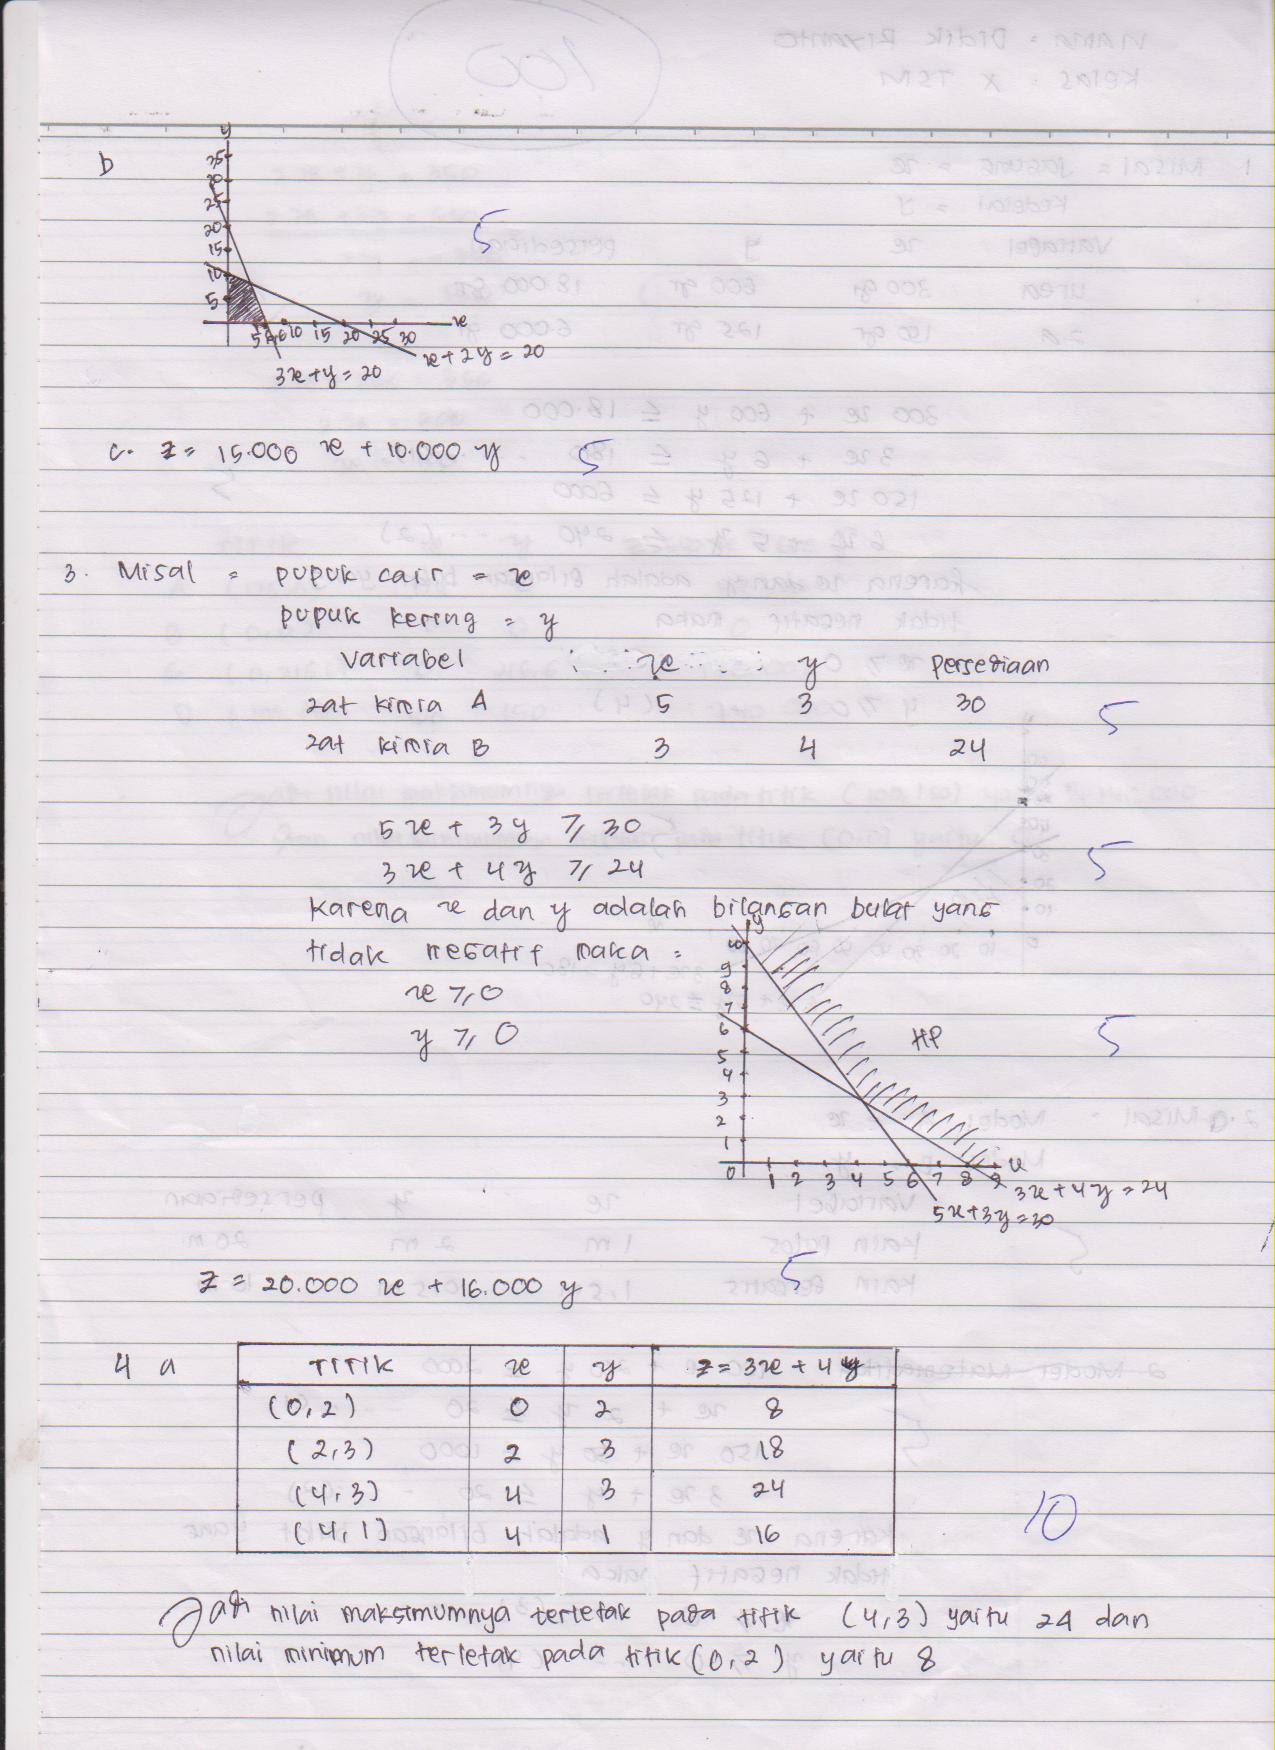 b
y
35
30
25
20
15
10
5
5
5 6,6 10 15 20 25 30
x
x + 2y = 20
3x + y = 20
c. z = 15.000 x + 10.000 y
5
3. Misal = pupuk cair = x
pupuk kering = y
Variabel x y Persediaan
zat kimia A 5 3 30
5
zat kimia B 3 4 24
5x + 3y ≥ 30
5
3x + 4y ≥ 24
Karena x dan y adalah bilangan bulat yang
tidak negatif maka =
x ≥ 0
y ≥ 0
y
10
9
8
7
6
5
4
3
2
1
0
1 2 3 4 5 6 7 8 9
x
HP
5
3x + 4y = 24
5x + 3y = 30
z = 20.000 x + 16.000 y
5
4 a
TITIK x y z = 3x + 4y
(0,2) 0 2 8
(2,3) 2 3 18
(4,3) 4 3 24
(4,1) 4 1 16
10
Jadi nilai maksimumnya terletak pada titik (4,3) yaitu 24 dan
nilai minimum terletak pada titik (0,2) yaitu 8